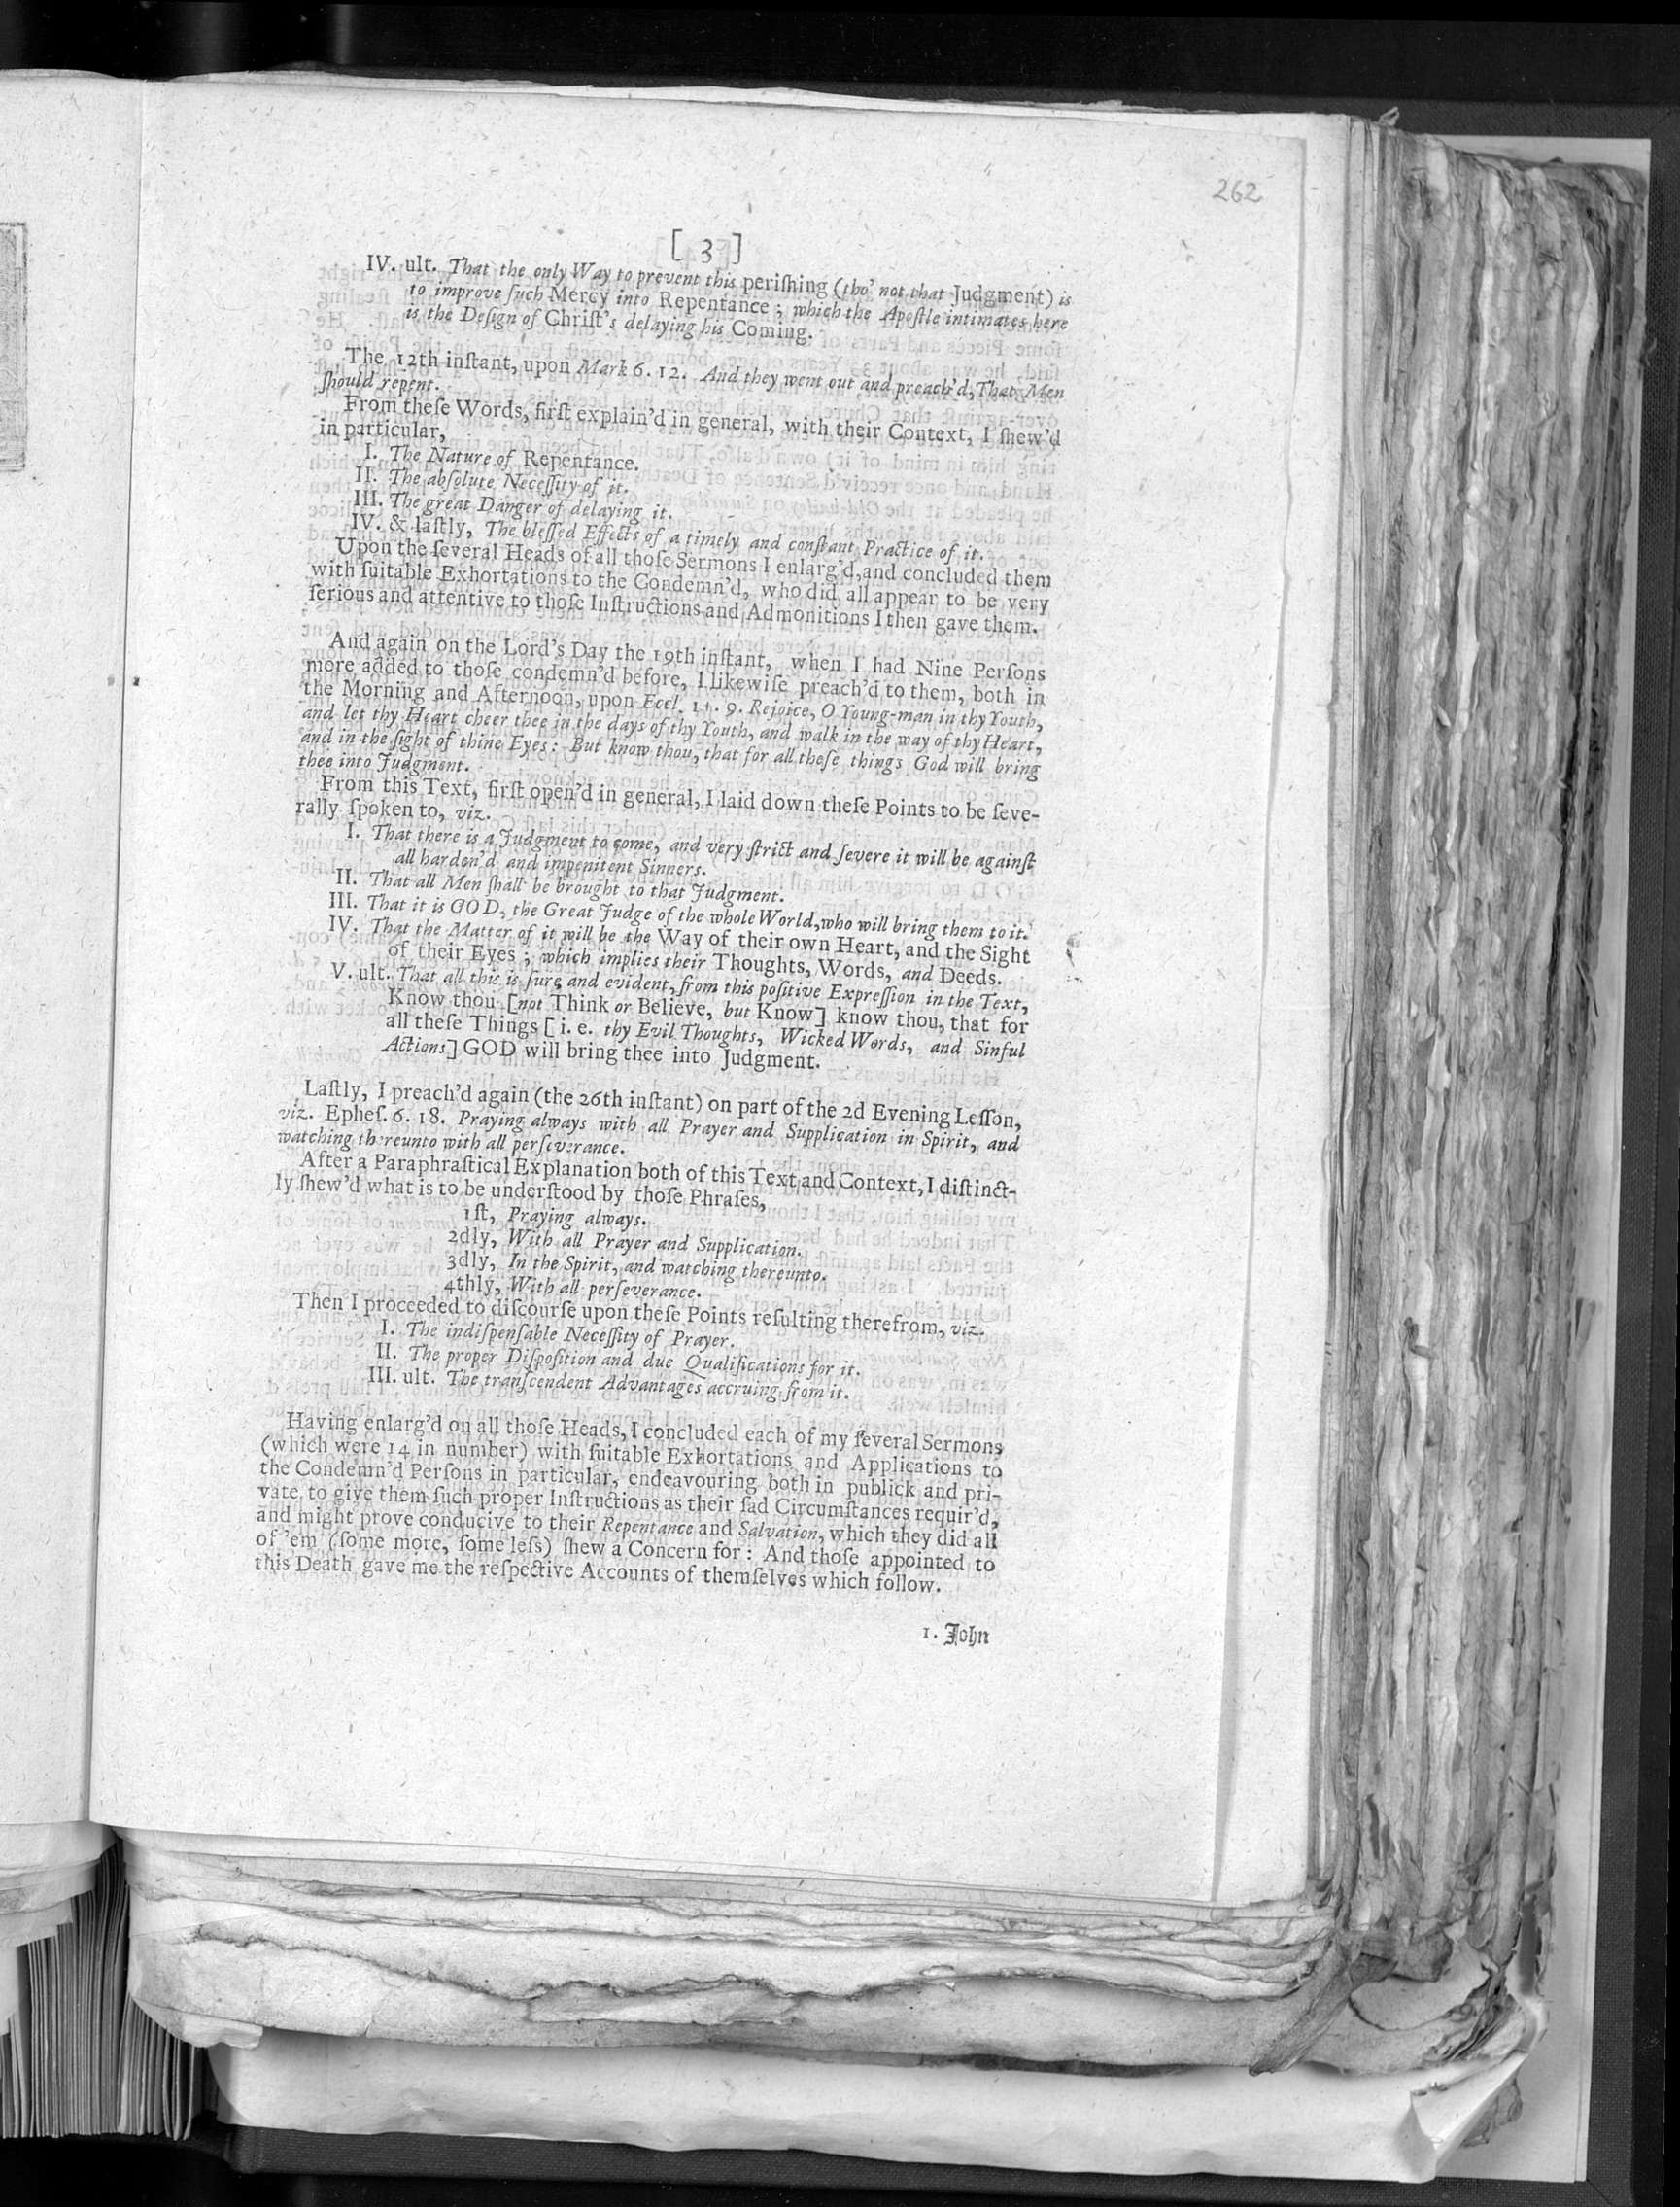 262
[ 3 ]
IV. ult. That the only Way to prevent this periſhing (tho' not that Judgment) is
to improve ſuch Mercy into Repentance; which the Apoſtle intimates here
is the Deſign of Chriſt's delaying his Coming.
The 12th inſtant, upon Mark 6. 12. And they went out and preach'd, That Men
ſhould repent.
From theſe Words, firſt explain'd in general, with their Context, I ſhew'd
in particular,
I. The Nature of Repentance.
II. The abſolute Neceſſity of it.
III. The great Danger of delaying it.
IV. & laſtly, The bleſſed Effects of a timely and conſtant Practice of it.
Upon the ſeveral Heads of all thoſe Sermons I enlarg'd, and concluded them
with ſuitable Exhortations to the Condemn'd, who did all appear to be very
ſerious and attentive to thoſe Inſtructions and Admonitions I then gave them.
And again on the Lord's Day the 19th inſtant, when I had Nine Perſons
more added to thoſe condemn'd before, I likewiſe preach'd to them, both in
the Morning and Afternoon, upon Eccl. 11. 9. Rejoice, O Young-man in thy Youth,
and let thy Heart cheer thee in the days of thy Youth, and walk in the way of thy Heart,
and in the ſight of thine Eyes: But know thou, that for all theſe things God will bring
thee into Judgment.
From this Text, firſt open'd in general, I laid down theſe Points to be ſeve-
rally ſpoken to, viz.
I. That there is a Judgment to come, and very ſtrict and ſevere it will be againſt
all harden'd and impenitent Sinners.
II. That all Men ſhall be brought to that Judgment.
III. That it is GOD, the Great Judge of the whole World, who will bring them to it.
IV. That the Matter of it will be the Way of their own Heart, and the Sight
of their Eyes; which implies their Thoughts, Words, and Deeds.
V. ult. That all this is ſure and evident, from this poſitive Expreſſion in the Text,
Know thou [not Think or Believe, but Know] know thou, that for
all theſe Things [i. e. thy Evil Thoughts, Wicked Words, and Sinful
Actions] GOD will bring thee into Judgment.
Laſtly, I preach'd again (the 26th inſtant) on part of the 2d Evening Leſſon,
viz. Epheſ. 6. 18. Praying always with all Prayer and Supplication in Spirit, and
watching thereunto with all perſeverance.
After a Paraphraſtical Explanation both of this Text and Context, I diſtinct-
ly ſhew'd what is to be underſtood by thoſe Phraſes,
1ſt, Praying always.
2dly, With all Prayer and Supplication.
3dly, In the Spirit, and watching thereunto.
4thly, With all perſeverance.
Then I proceeded to diſcourſe upon theſe Points reſulting therefrom, viz.
I. The indiſpenſable Neceſſity of Prayer.
II. The proper Diſpoſition and due Qualifications for it.
III. ult. The tranſcendent Advantages accruing from it.
Having enlarg'd on all thoſe Heads, I concluded each of my ſeveral Sermons
(which were 14 in number) with ſuitable Exhortations and Applications to
the Condemn'd Perſons in particular, endeavouring both in publick and pri-
vate, to give them ſuch proper Inſtructions as their ſad Circumſtances requir'd,
and might prove conducive to their Repentance and Salvation, which they did all
of 'em (ſome more, ſome leſs) ſhew a Concern for: And thoſe appointed to
this Death gave me the reſpective Accounts of themſelves which follow.
1. John